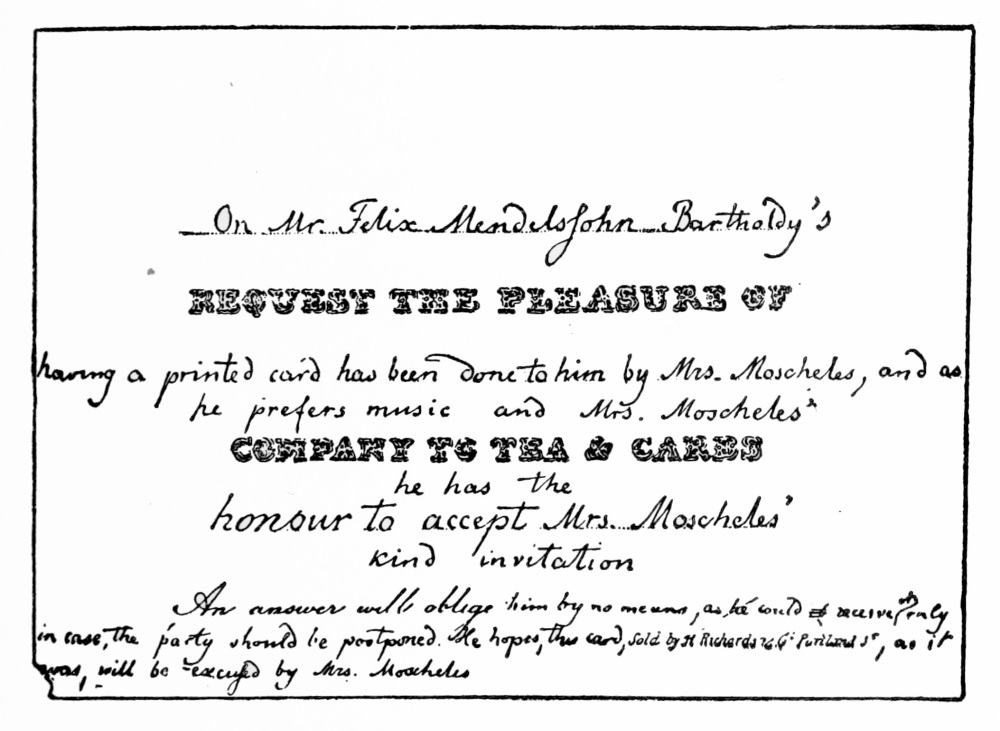 On Mr. Felix Mendelssohn Bartholdy's
REQUEST THE PLEASURE OF
having a printed card has been done to him by Mrs. Moscheles, and as
he prefers music and Mrs. Moscheles'
COMPANY TO TEA & CARDS
he has the
honour to accept Mrs. Moscheles'
kind invitation
An answer will oblige him by no means, as he could receive it only
in case, the party should be postponed. He hopes, this card, Sold by H Richards 126 Gt. Portland St, as it
was, will be excused by Mrs. Moscheles